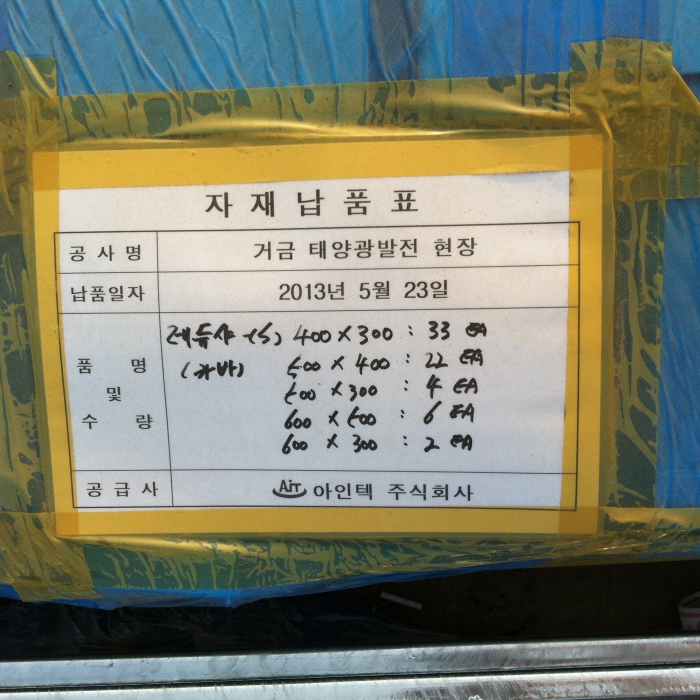 자재납품표
공사명 거금 태양광발전 현장
납품일자 2013년 5월 23일
품명 및 수량
레듀샤 -(S) 400 X 300 : 33 EA
(카바) 500 X 400 : 22 EA
500 X 300 : 4 EA
600 X 500 : 6 EA
600 X 300 : 2 EA
공급사 AiT 아인텍 주식회사